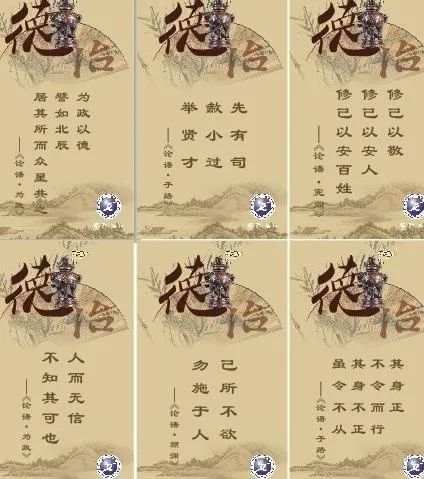 德治
为政以德
譬如北辰
居其所而众星共之
——《论语·为政》
德治
先有司
赦小过
举贤才
——《论语·子路》
德治
修己以敬
修己以安人
修己以安百姓
——《论语·宪问》
德治
人而无信
不知其可也
——《论语·为政》
德治
己所不欲
勿施于人
——《论语·颜渊》
德治
其身正
不令而行
其身不正
虽令不从
——《论语·子路》